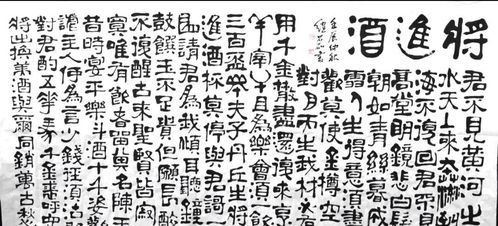 將進酒
君不見黃河之
水天上來奔流到
海不復回君不見
高堂明鏡悲白髮
朝如青絲暮成
雪人生得意須盡
歡莫使金樽空
對月天生我材必
用千金散盡還復來烹
羊宰牛且爲樂會須一飲
三百盃岑夫子丹丘生將
進酒杯莫停與君謌一
曲請君爲我傾耳聽鐘
鼓饌玉不足貴但願長醉
不復醒古來聖賢皆寂
寞唯有飲者留其名陳王
昔時宴平樂斗酒十千恣歡
謔主人何爲言少錢徑須沽取
對君酌五花馬千金裘呼兒
將出換美酒與爾同銷萬古愁
壬辰仲秋
書